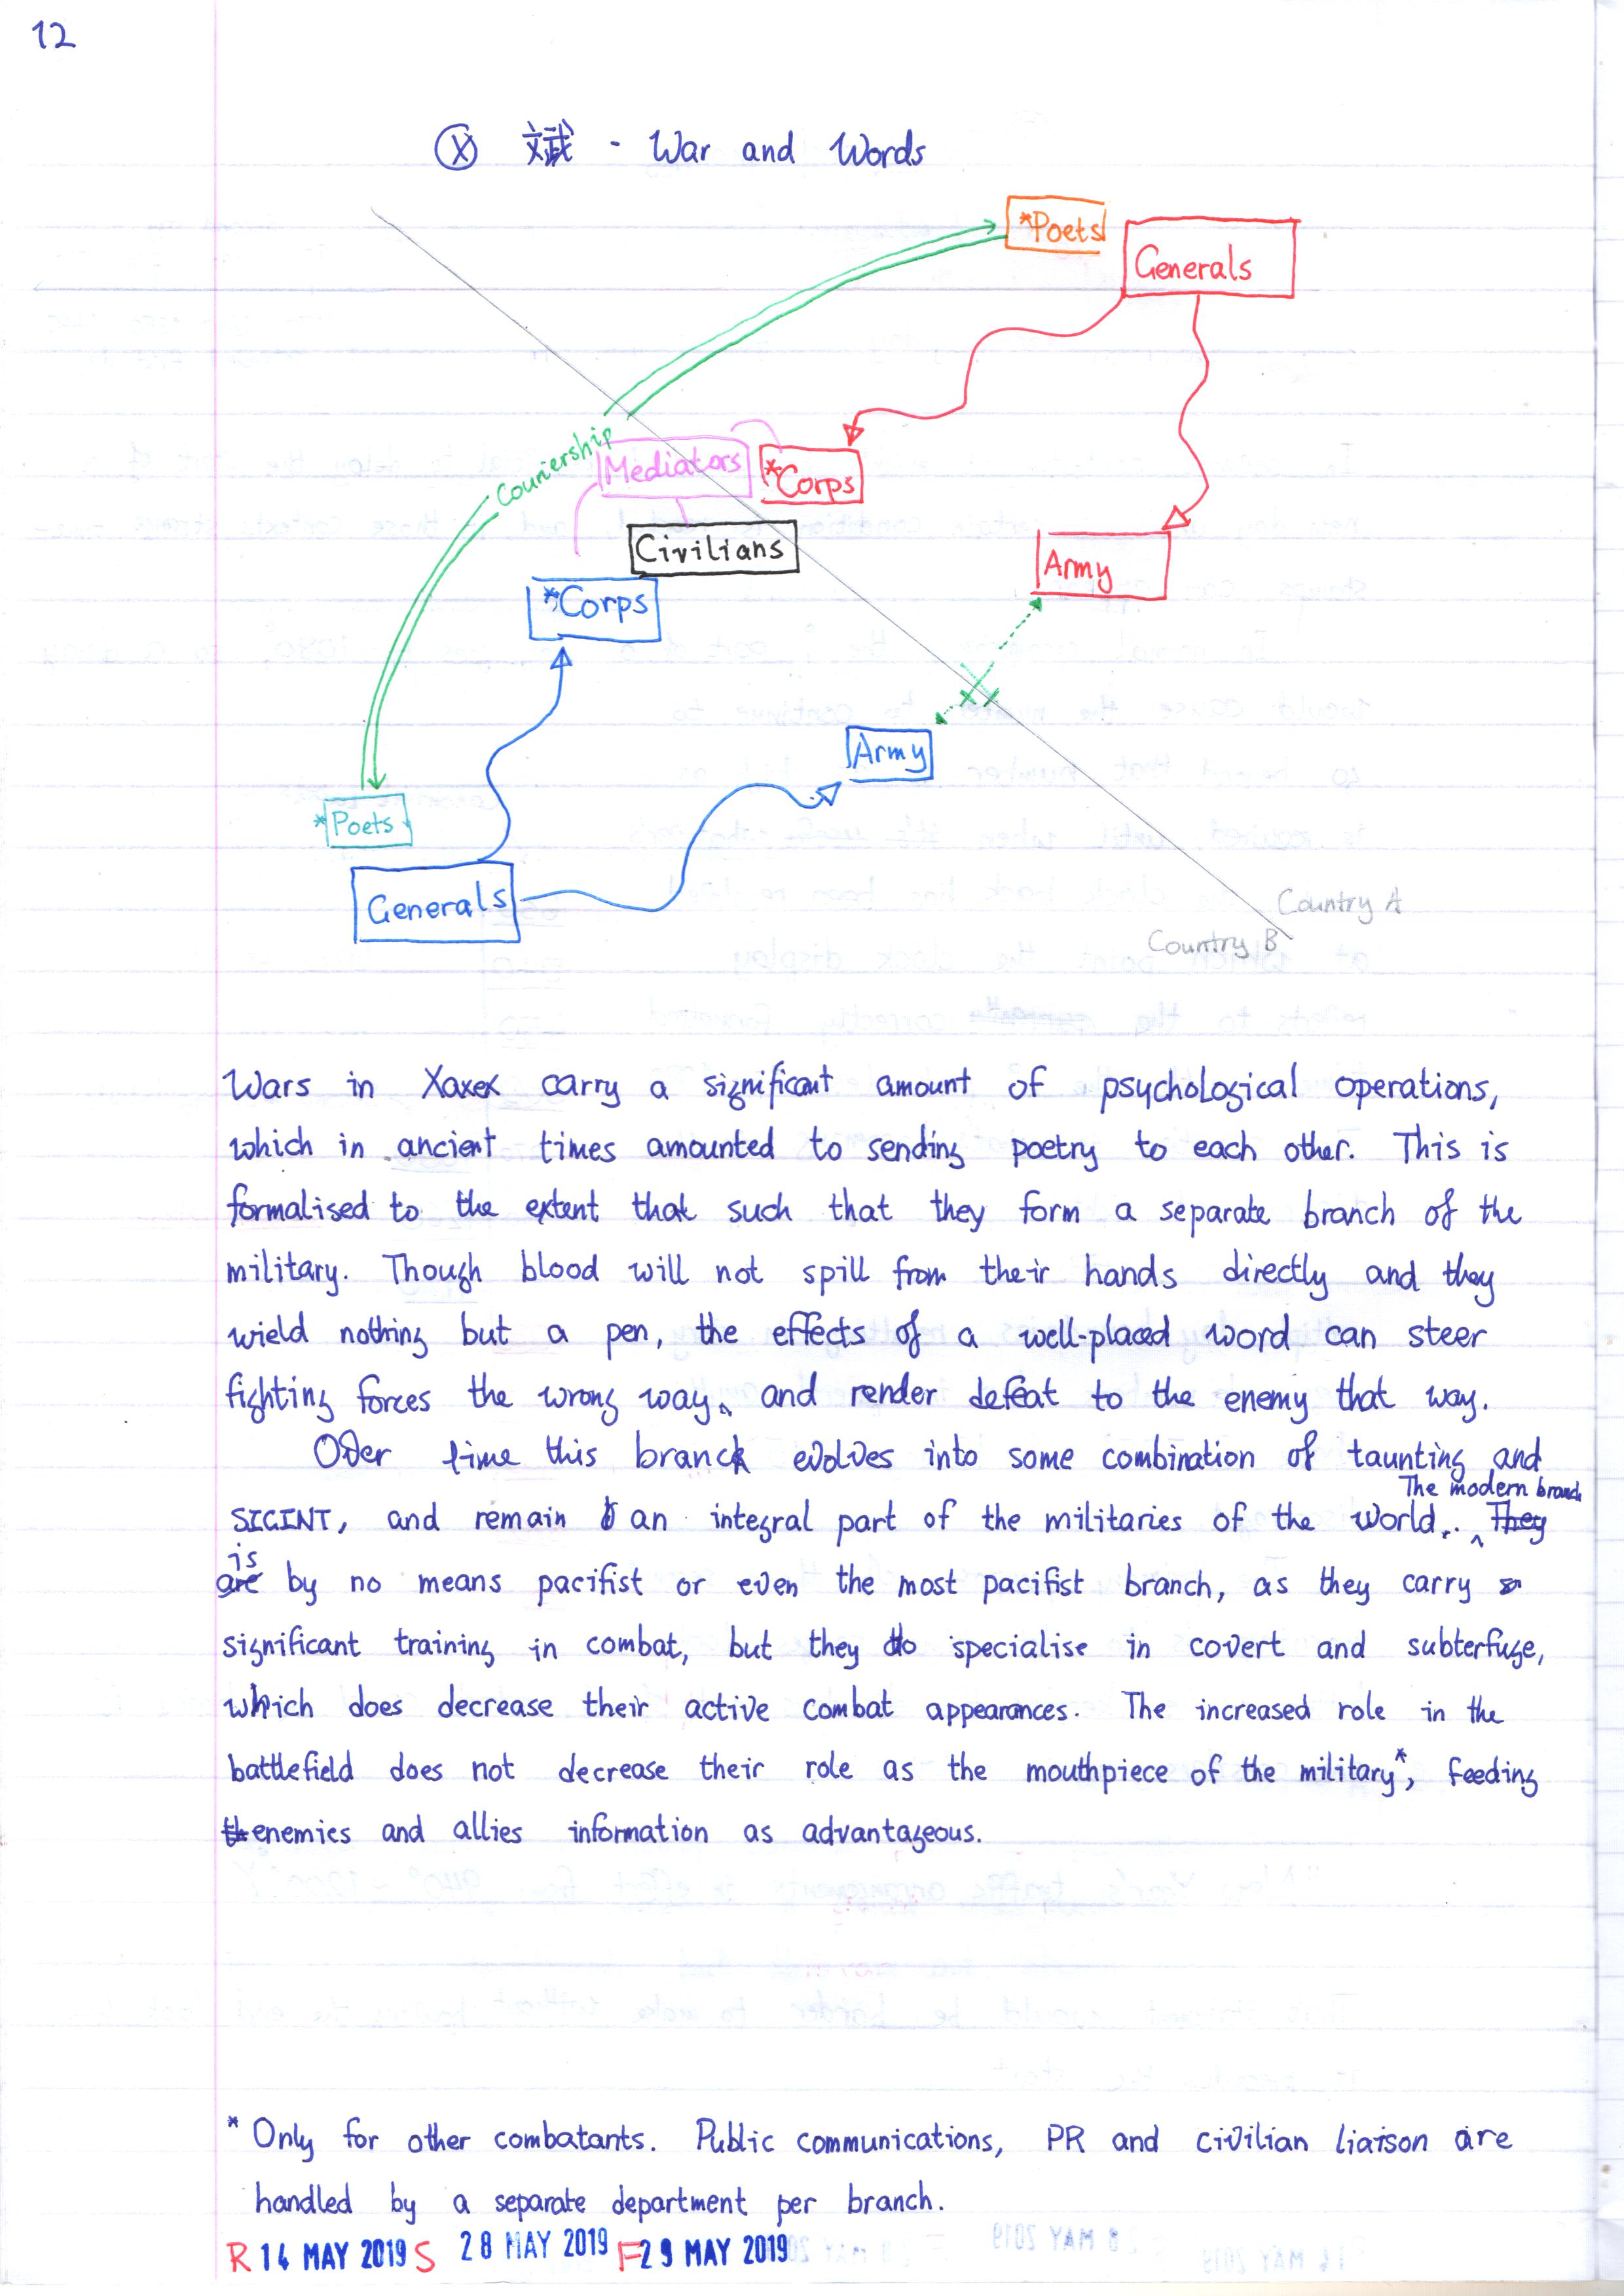 12
Ⓧ 斌 - War and Words
*Poets
Generals
Couriership
Mediators
*Corps
Civilians
Army
*Corps
Army
*Poets
Generals
Country A
Country B
Wars in Xaxex carry a significant amount of psychological operations,
which in ancient times amounted to sending poetry to each other. This is
formalised to the extent that such that they form a separate branch of the
military. Though blood will not spill from their hands directly and they
wield nothing but a pen, the effects of a well-placed word can steer
fighting forces the wrong way, and render defeat to the enemy that way.
Over time this branch evolves into some combination of taunting and
The modern branch
SIGINT, and remain an integral part of the militaries of the world. They
is
are by no means pacifist or even the most pacifist branch, as they carry
significant training in combat, but they do specialise in covert and subterfuge,
which does decrease their active combat appearances. The increased role in the
battlefield does not decrease their role as the mouthpiece of the military*, feeding
enemies and allies information as advantageous.
* Only for other combatants. Public communications, PR and civilian liaison are
handled by a separate department per branch.
R 14 MAY 2019 S 28 MAY 2019 F 29 MAY 2019